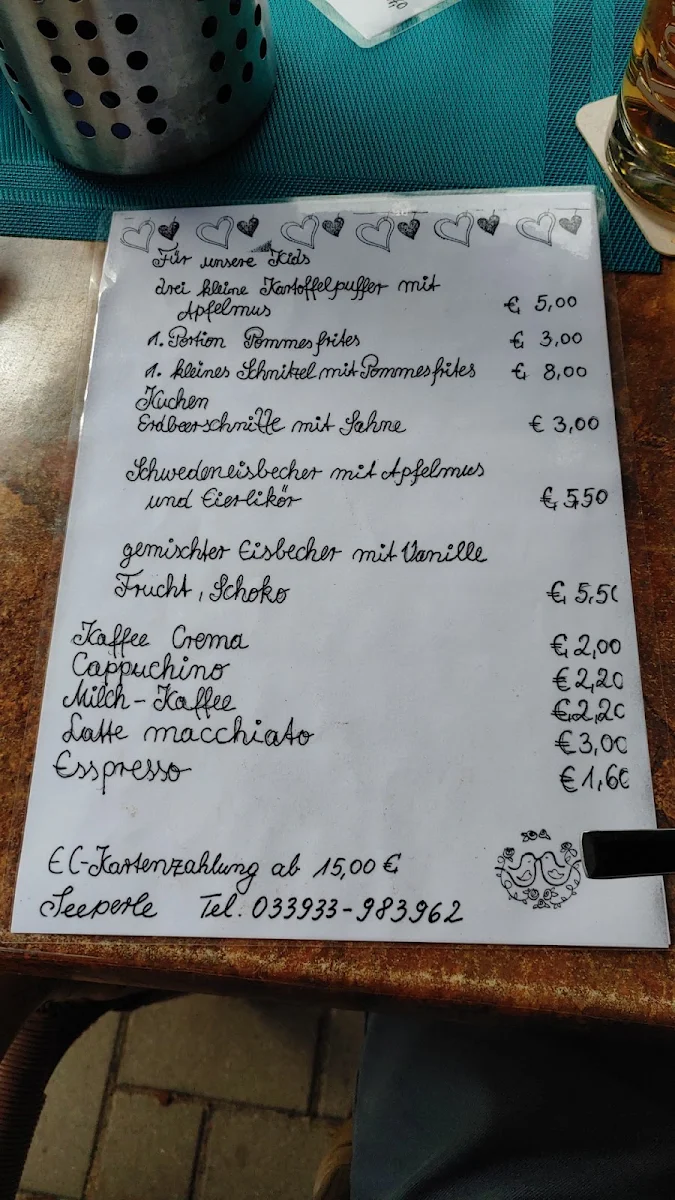 Für unsere Kids
drei kleine Kartoffelpuffer mit
Apfelmus € 5,00
1. Portion Pommesfrites € 3,00
1. kleines Schnitzel mit Pommesfrites € 8,00
Kuchen
Erdbeerschnitte mit Sahne € 3,00
Schwedeneisbecher mit Apfelmus
und Eierlikör € 5,50
gemischter Eisbecher mit Vanille
Frucht, Schoko € 5,50
Kaffee Crema € 2,00
Cappuchino € 2,20
Milch-Kaffee € 2,20
Latte macchiato € 3,00
Esspresso € 1,60
EC-Kartenzahlung ab 15,00 €
Seeperle Tel. 033933-983962